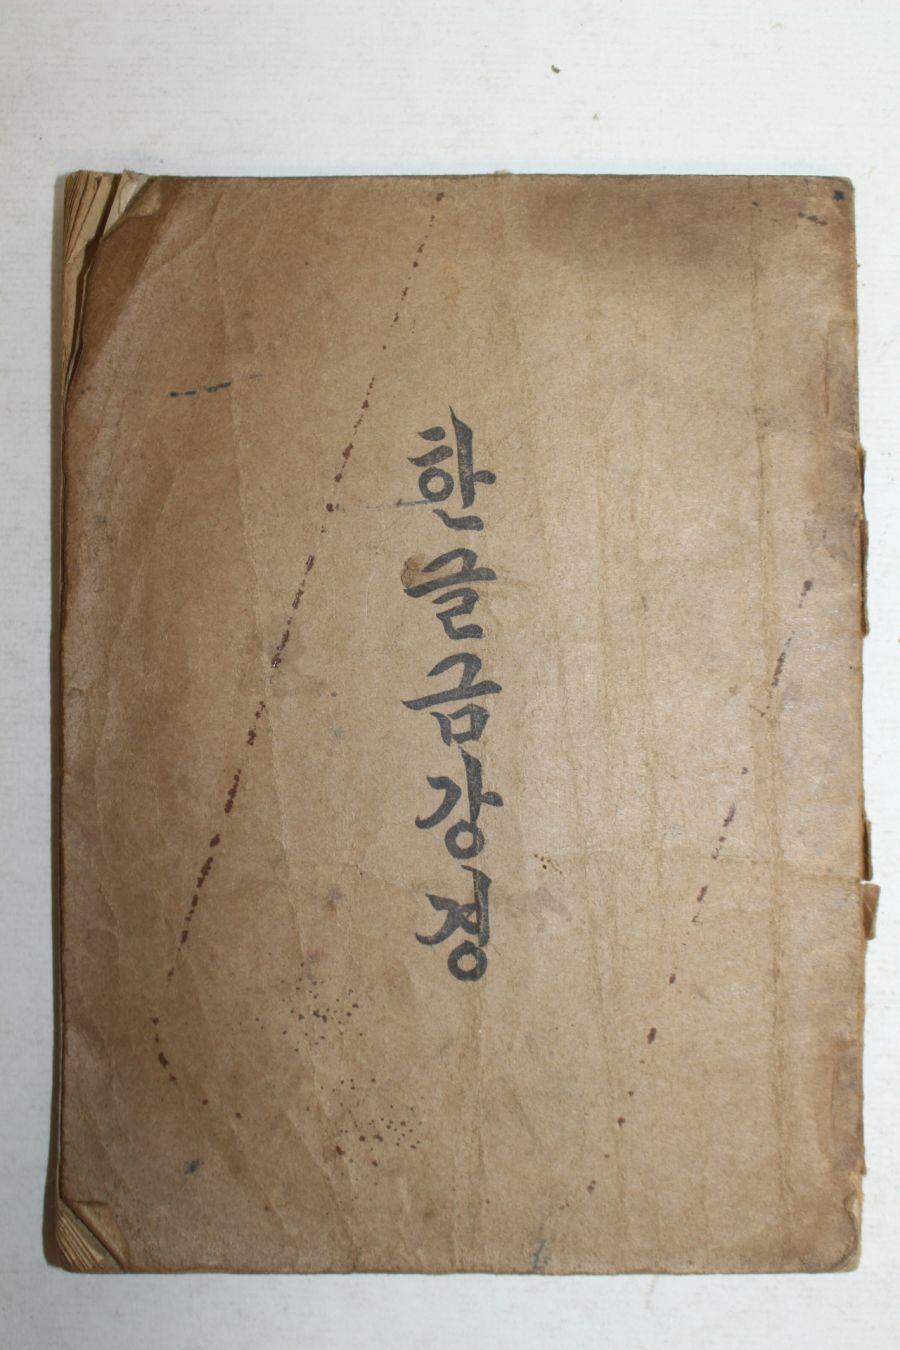 한글금강경